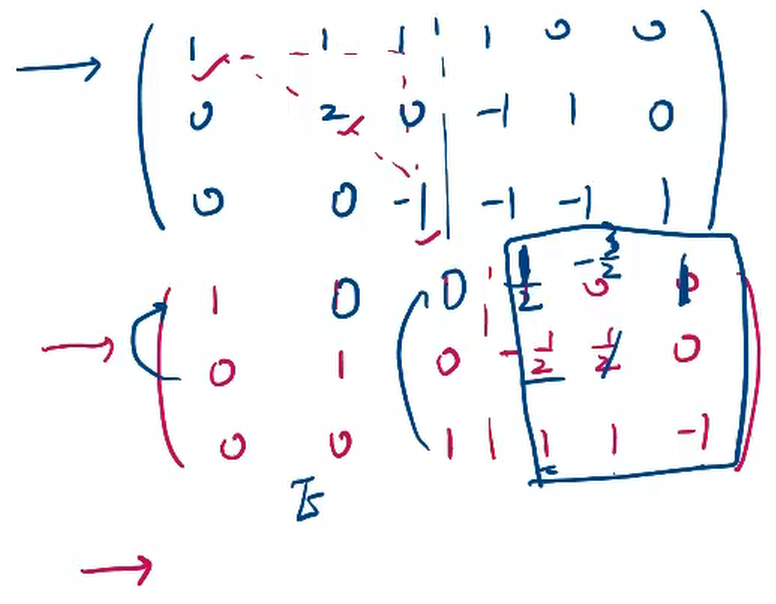 → ( 1 1 1 | 1 0 0 )
0 2 0 | -1 1 0
0 0 -1 | -1 -1 1
→ ( 1 0 0 | 1/2 -3/2 1 )
0 1 0 | -1/2 1/2 0
0 0 1 | 1 1 -1
→